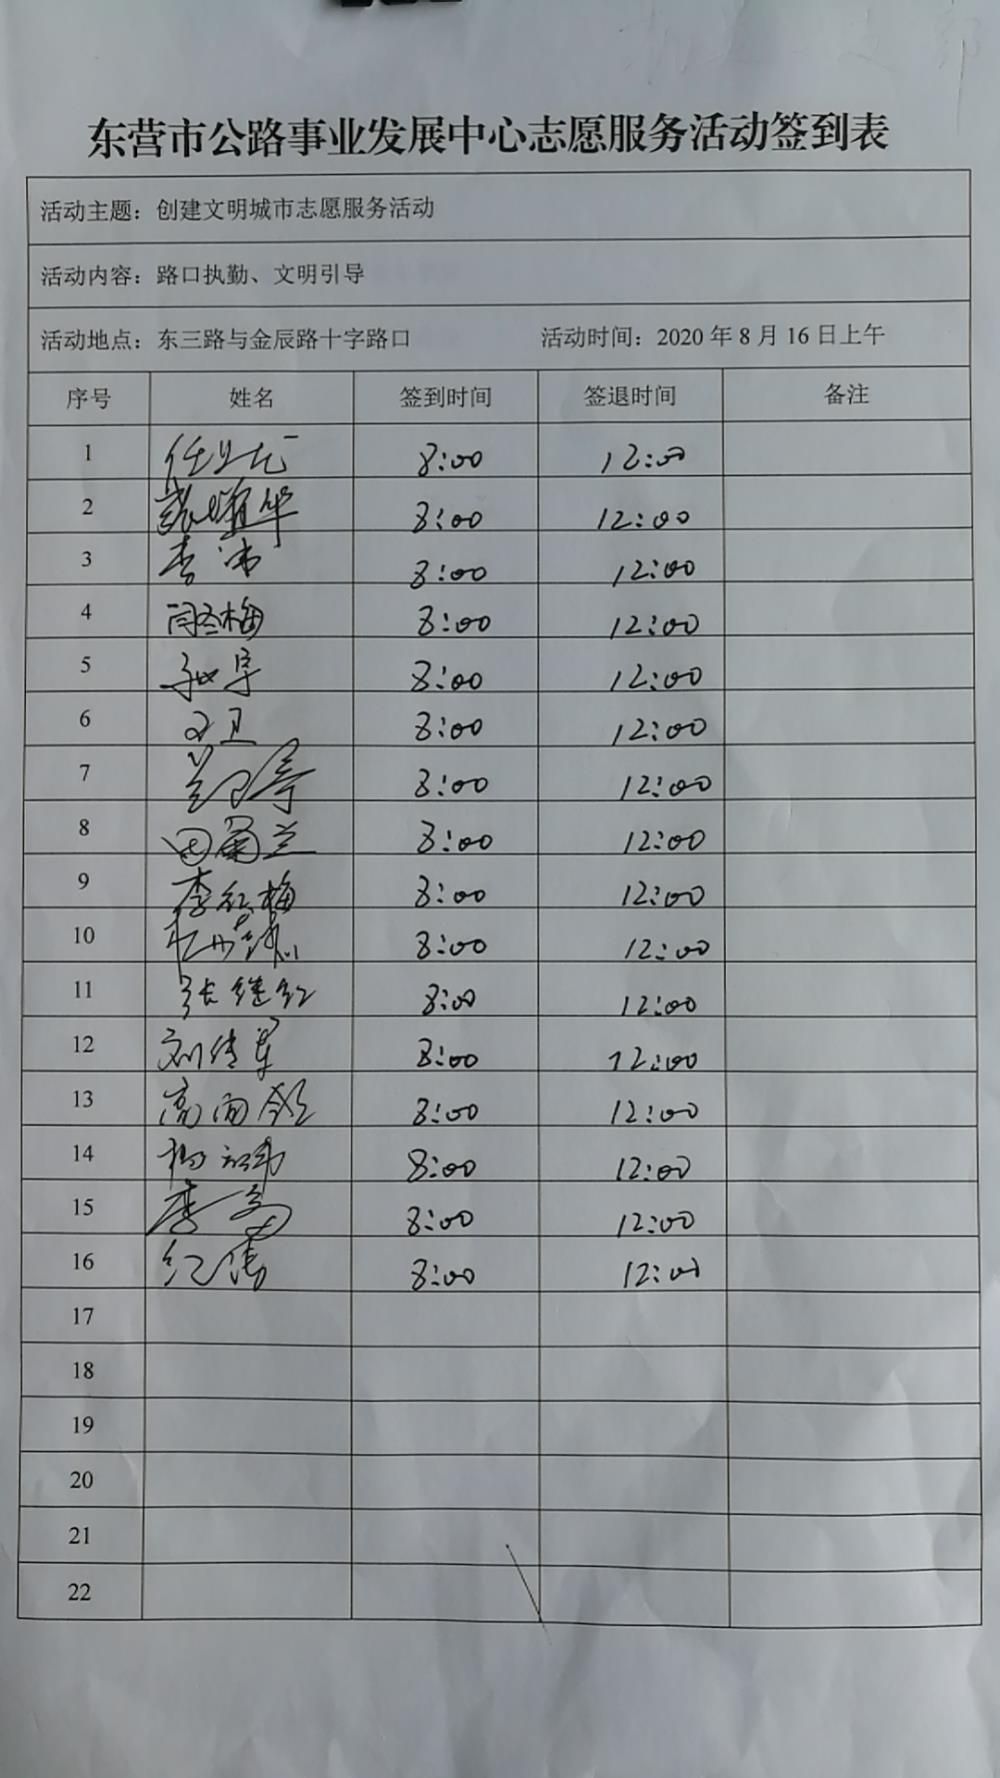 东营市公路事业发展中心志愿服务活动签到表
活动主题：创建文明城市志愿服务活动
活动内容：路口执勤、文明引导
活动地点：东三路与金辰路十字路口 活动时间：2020 年 8 月 16 日上午
序号 姓名 签到时间 签退时间 备注
1 8:00 12:00
2 华 8:00 12:00
3 李 8:00 12:00
4 闫冬梅 8:00 12:00
5 8:00 12:00
6 卫 8:00 12:00
7 8:00 12:00
8 田菊兰 8:00 12:00
9 李红梅 8:00 12:00
10 8:00 12:00
11 张继红 8:00 12:00
12 刘传军 8:00 12:00
13 高 8:00 12:00
14 杨 8:00 12:00
15 李 8:00 12:00
16 红伟 8:00 12:00
17
18
19
20
21
22